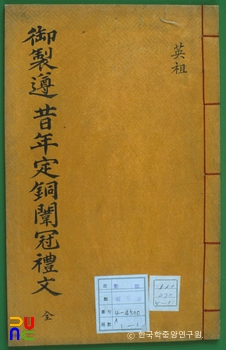 御製遵昔年定銅闈冠禮文
全
英祖
4-6900
1-1
PUNC
한국학중앙연구원